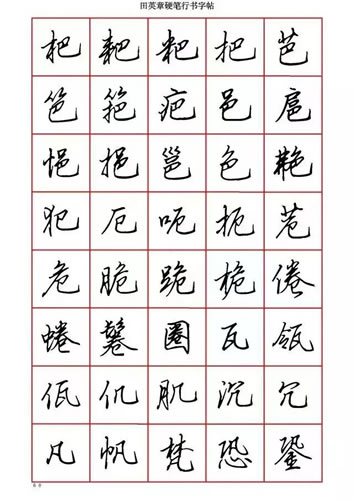 田英章硬笔行书字帖
杷 耙 粑 把 芭
笆 筢 疤 邑 扈
悒 挹 邕 色 艳
犯 厄 呃 扼
危 脆 跪 桅 倦
蜷 鬈 圈 瓦 瓴
佤 仉 肌 沉 冗
凡 帆 梵 恐 銎